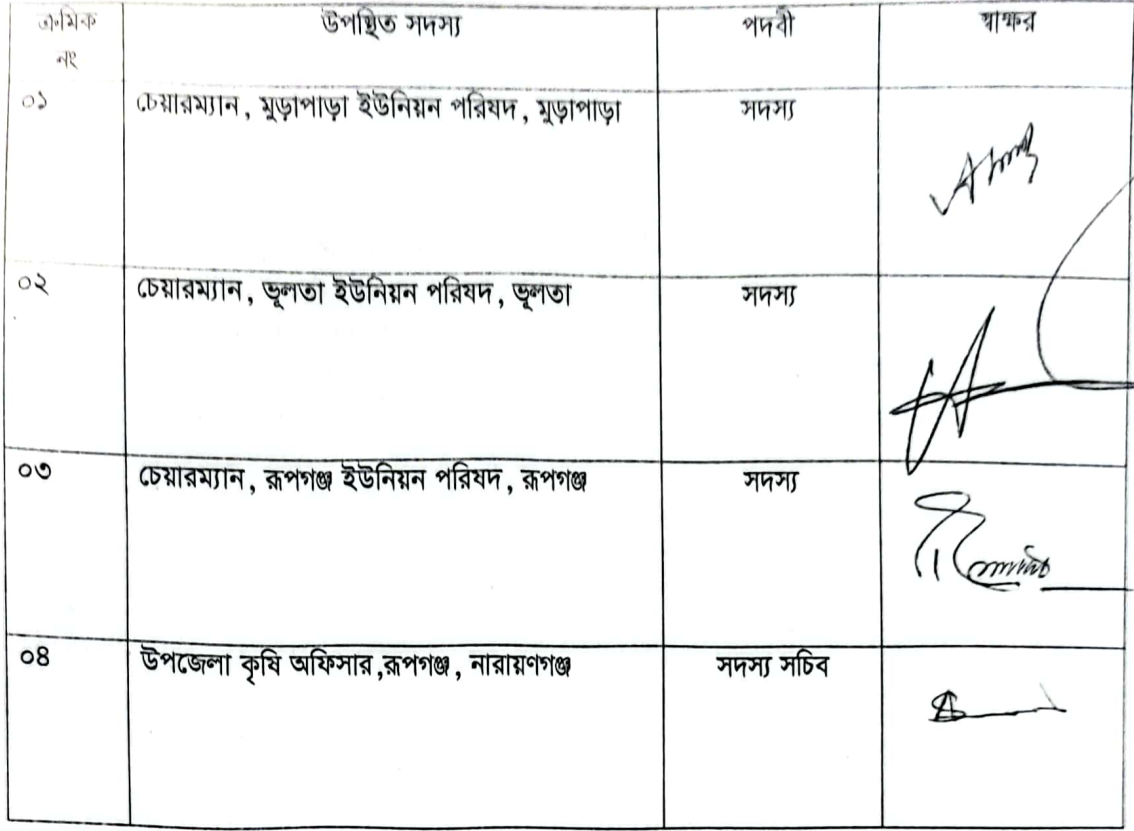 ক্রমিক নং উপস্থিত সদস্য পদবী স্বাক্ষর
০১ চেয়ারম্যান, মুড়াপাড়া ইউনিয়ন পরিষদ, মুড়াপাড়া সদস্য
০২ চেয়ারম্যান, ভূলতা ইউনিয়ন পরিষদ, ভূলতা সদস্য
০৩ চেয়ারম্যান, রূপগঞ্জ ইউনিয়ন পরিষদ, রূপগঞ্জ সদস্য
০৪ উপজেলা কৃষি অফিসার,রূপগঞ্জ, নারায়ণগঞ্জ সদস্য সচিব